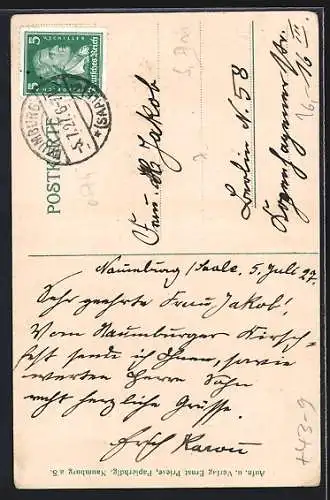 Deutsches Reich
5 5
NAUMBURG (SAALE)
-5.7.27.6-7
POSTKARTE
Frau M. Jakob
Berlin N. 58
Kopenhagener Str.
16 III
Naumburg / Saale, 5. Juli 27.
Sehr geehrte Frau Jakob!
Vom Naumburger Kirsch-
fest sende ich Ihnen, sowie
werten Herrn Sohn
recht herzliche Grüsse.
Erich
Aufn. u. Verlag Ernst Priese, Papierhdlg. Naumburg a.S.
+43-9